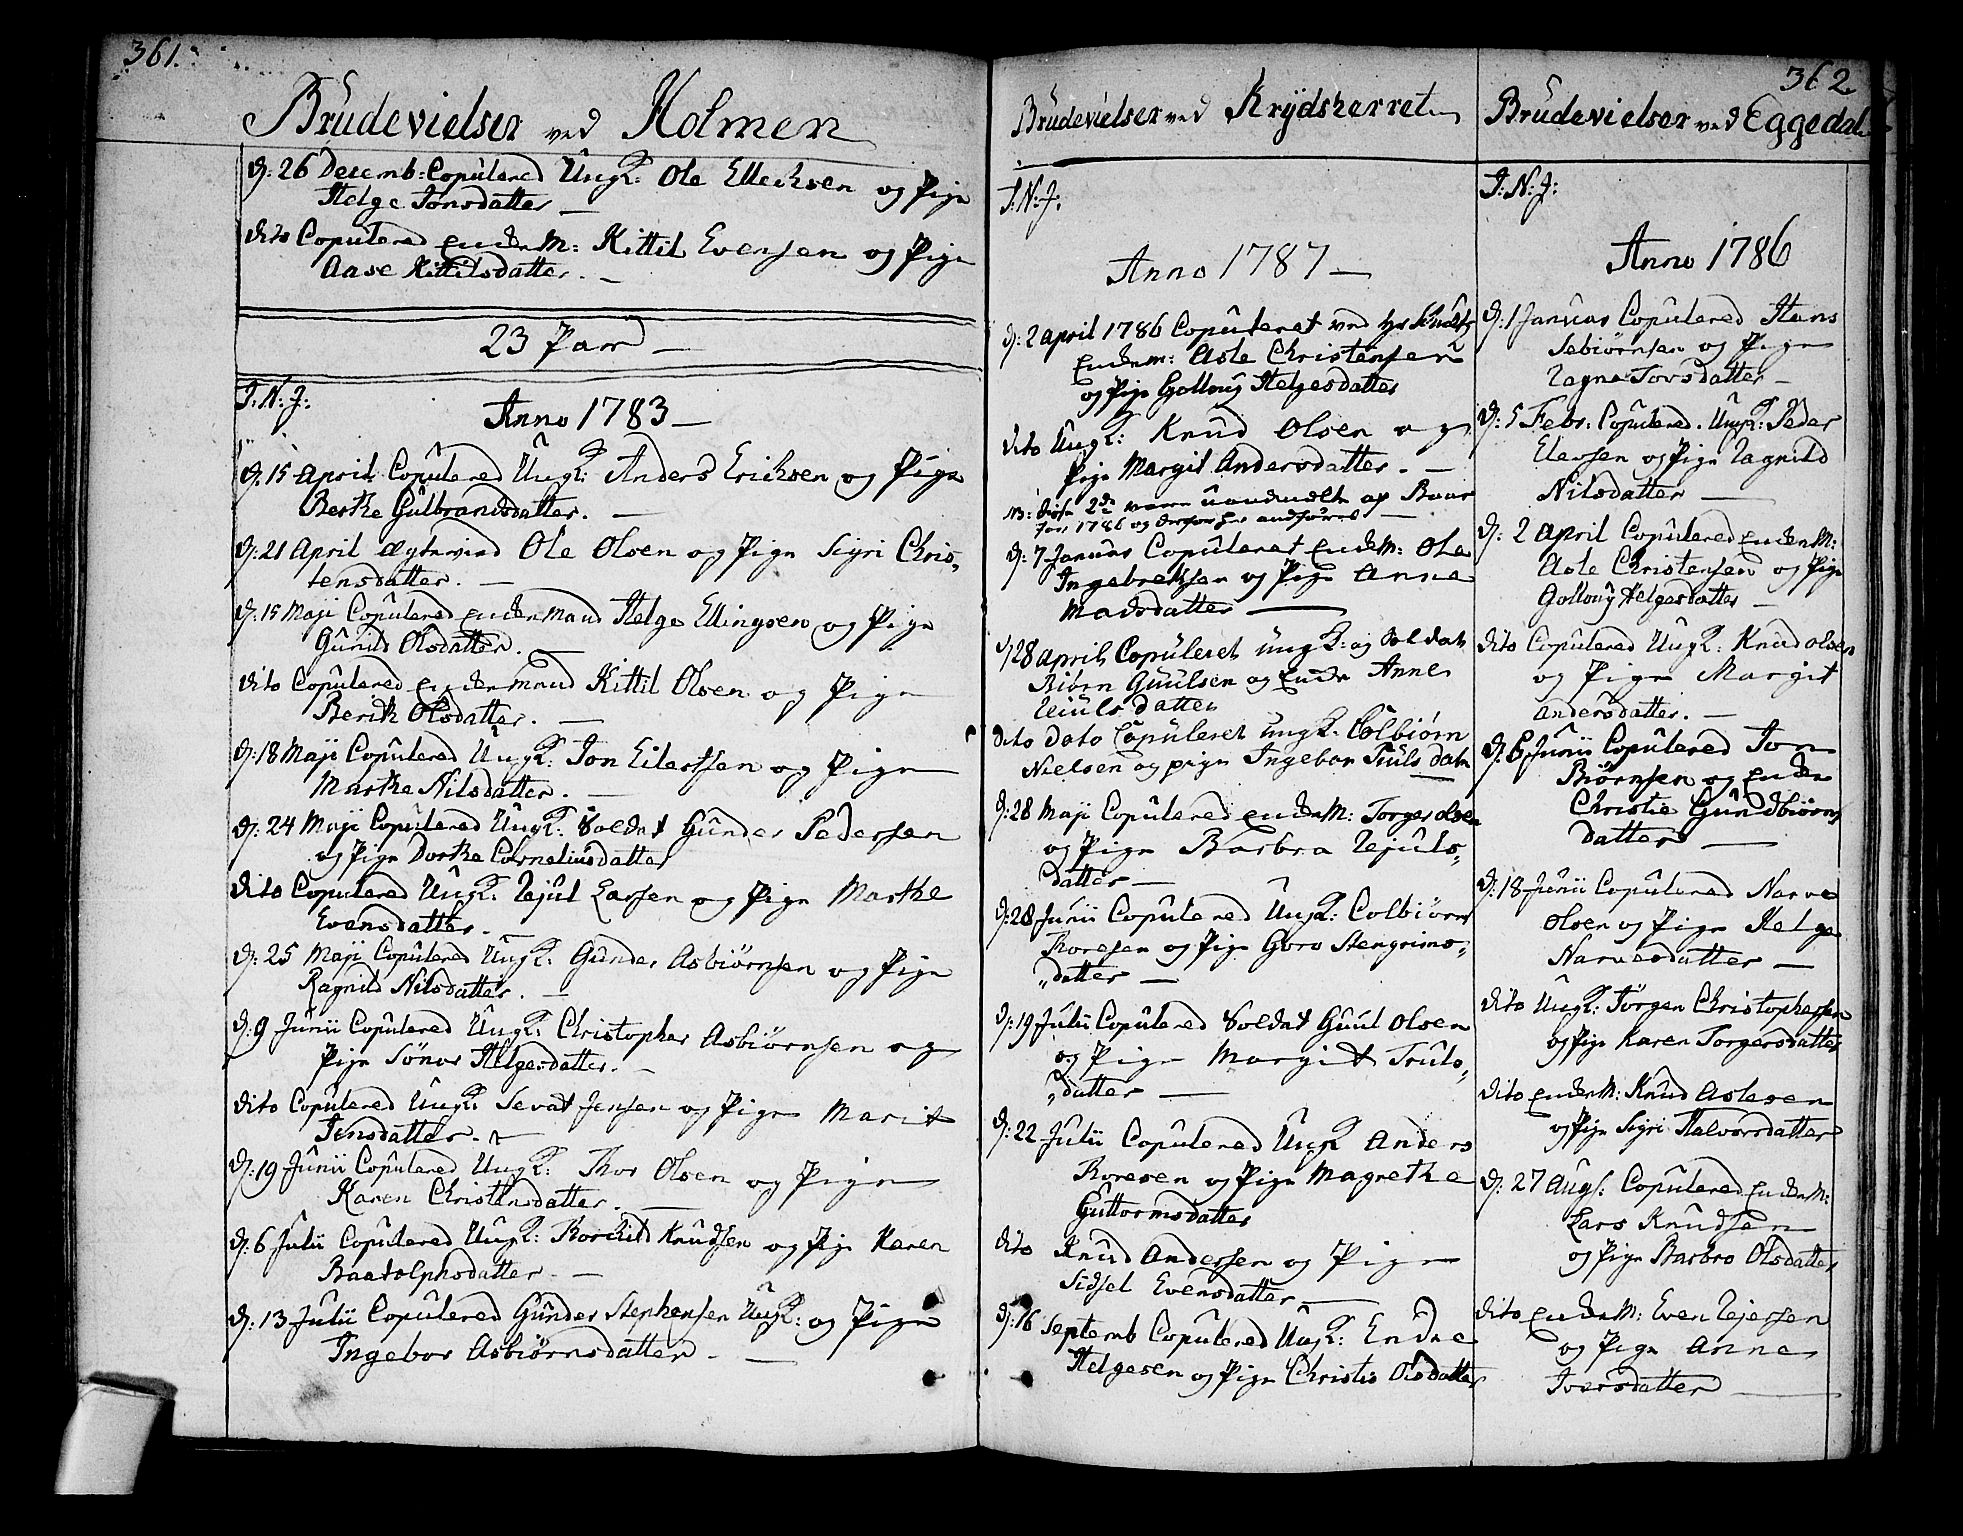 361.
Brudevielser ved Holmen
d: 26 Decemb: Copulered Ungk: Ole Ellechsen og Pige
Helge Jonsdatter —
dito Copulered Enckem: Kittil Evensen og Pige
Aase Kittilsdatter. —
23 Par —
I. N. J.
Anno 1783 —
d: 15 April Copulered Ungk: Anders Erichsen og Pige
Berthe Gulbrandsdatter. —
d: 21 April Ole Olsen og Pige Sigri Chris-
tensdatter. —
d: 15 Maji Copulered Enckemand Helge Ellingsen og Pige
Gunild Olsdatter. —
dito Copulered Enckemand Kittil Olsen og Pige
Berith Olsdatter. —
d: 18 Maji Copulered Ungk: Jon Eilertsen og Pige
Marthe Nilsdatter. —
d: 24 Maji Copulered Ungk: Soldat Gunder Pedersen
og Pige Dorthe Corneliusdatter
dito Copulered Ungk: Tejul Larsen og Pige Marthe
Evensdatter. —
d: 25 Maji Copulered Ungk: Gunder Asbiörnsen og Pige
Ragnild Nilsdatter. —
d: 9 Junii Copulered Ungk: Christopher Asbiörnsen og
Pige Sönov Helgesdatter. —
dito Copulered Ungk: Sevat Jensen og Pige Marit
Jensdatter. —
d: 19 Junii Copulered Ungk: Thor Olsen og Pige
Karen Christensdatter. —
d: 6 Julii Copulered Ungk: Thorkild Knudsen og Pige Karen
Baadolphsdatter —
d: 13 Julii Copulered Gunder Stephensen Ungk: og Pige
Ingebor Asbiörnsdatter. —
Brudevielser ved Krydsherret
I. N. J:
Anno 1787 —
d: 2 april 1786 Copuleret ved
Enckem: Asle Christensen
og Pige Gollaug Helgesdatter
dito Ungk: Knud Olsen og
Pige Margit Andersdatter. —
NB: disse 2de vare
for 1786 og derfor her anförte —
d: 7 Januar Copuleret Enckem: Ole
Ingebretsen og Pige Anne
Madsdatter —
d 28 april Copuleret ungk: og Soldat
Guulsen og Encke Anne
datter
dito dato Copuleret ungk: Colbiørn
Nielsen og pige Ingebor Truls dater
d: 28 Maji Copulered Enckem: Torger Olsen
og Pige Barbra Tejuls-
datter —
d: 28 Junii Copulered Ungk: Colbiörn
Thoresen og Pige Goro Stengrims-
„datter —
d: 19 Julii Copulered Soldat Guul Olsen
og Pige Margit Truls-
„datter —
d: 22 Julii Copulered Ungk Anders
Thoresen og Pige Magrethe
Guttormsdatter
dito Knud Andersen og Pige
Sidsel Evensdatter —
d: 16 Septemb Copulered Ungk: Endre
Helgesen og Pige Christie Olsdatter
362
Brudevielser ved Eggedal
I: N: J:
Anno 1786
d: 1 Januar Copulered Hans
Sebiörnsen og Pige
Ragne Torsdatter —
d: 5 Febr: Copulered. Ungk: Peder
Elersen og Pige Ragnild
Nilsdatter —
d: 2 April Copulered Enckem:
Asle Christensen og Pige
Gollaug Helgesdatter —
dito Copulered Ungk: Knud Olsen
og Pige Margit
Andersdatter. —
d: 6 Junii Copulered Jon
Biörnsen og Encke
Christie Gundbiörns
datter —
d: 18 Junii Copulered Narve
Olsen og Pige Helge
Narvesdatter —
dito Ungk: Jörgen Christophersen
og Pige Karen Torgersdatter
dito Enckem: Knud Aslesen
og Pige Sigri Halvorsdatter
d: 27 Augs: Copulered Enckem:
Lars Knudsen
og Pige Barbro Olsdatter
dito Enckem: Even Rejersen
og Pige Anne
Iversdatter —